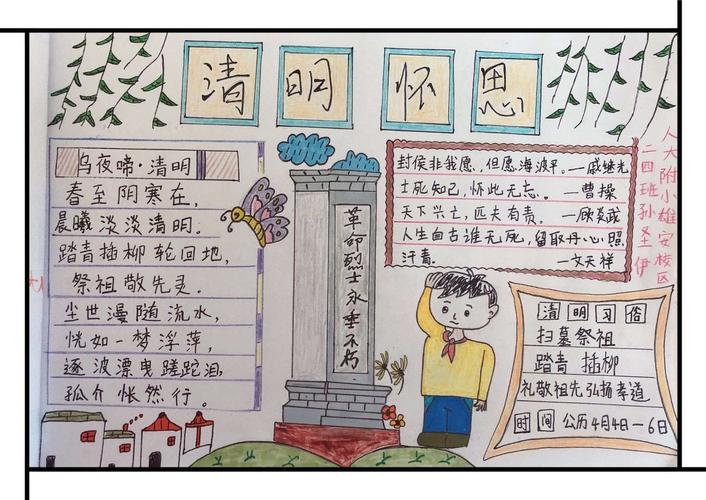 清明怀思
乌夜啼·清明
春至阴寒在,
晨曦淡淡清明。
踏青插柳轮回地,
祭祖敬先灵。
尘世漫随流水,
恍如一梦浮萍,
逐波漂曳蹉跎泪,
孤介怅然行。
革命烈士永垂不朽
封侯非我愿,但愿海波平。—戚继光
士死知己,怀此无忘。—曹操
天下兴亡,匹夫有责。—顾炎武
人生自古谁无死,留取丹心照
汗青。—文天祥
人大附小雄安校区
二四班孙圣伊
清明习俗
扫墓祭祖
踏青 插柳
礼敬祖先弘扬孝道
时间 公历4月4日—6日